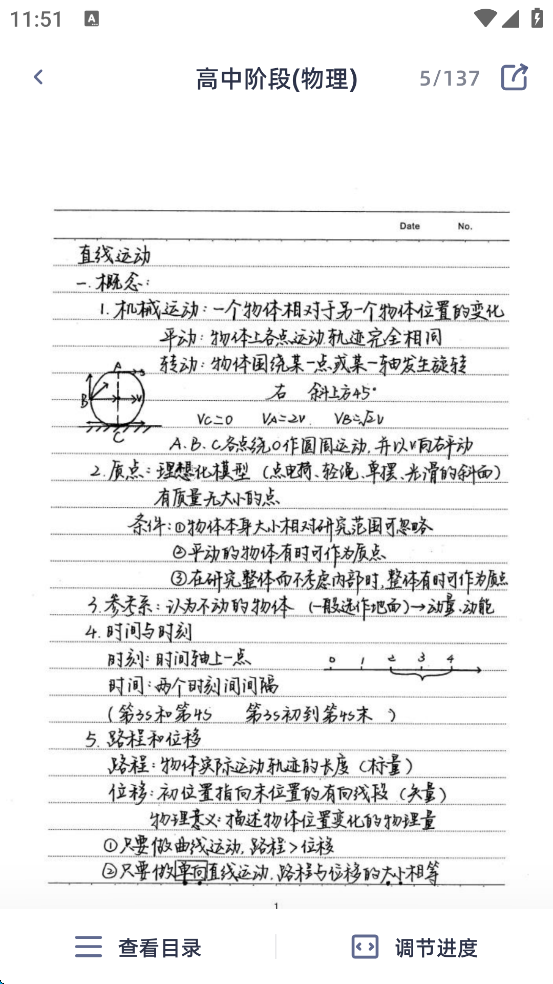 11:51
A
高中阶段(物理)
5/137
Date No.
直线运动
一.概念:
1.机械运动:一个物体相对于另一个物体位置的变化
平动:物体上各点运动轨迹完全相同
转动:物体围绕某一点或某一轴发生旋转
A
B
C
v
右 斜上方45°
Vc=0 VA=2V VB=√2V
A.B.C各点绕O作圆周运动,并以V向右平动
2.质点:理想化模型 (点电荷、轻绳、单摆、光滑的斜面)
有质量无大小的点
条件:①物体本身大小相对研究范围可忽略
②平动的物体有时可作为质点
③在研究整体而不考虑内部时,整体有时可作为质点
3.参考系:认为不动的物体 (一般选作地面)→动量、动能
4.时间与时刻
时刻:时间轴上一点
0 1 2 3 4
时间:两个时刻间间隔
(第3s和第4s 第3s初到第4s末 )
5.路程和位移
路程:物体实际运动轨迹的长度(标量)
位移:初位置指向末位置的有向线段(矢量)
物理意义:描述物体位置变化的物理量
①只要做曲线运动,路程>位移
②只要做单向直线运动,路程与位移的大小相等
1
查看目录
调节进度